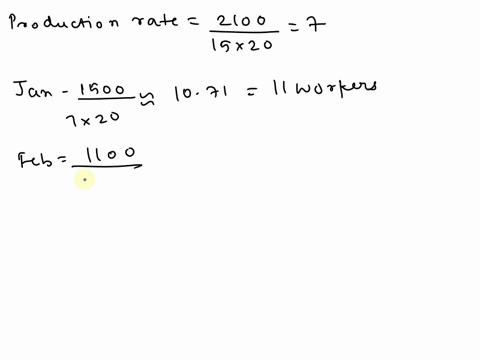 Production rate = 2100 / 15 x 20 = 7
Jan - 1500 / 7 x 20 ≈ 10.71 = 11 workers
Feb = 1100